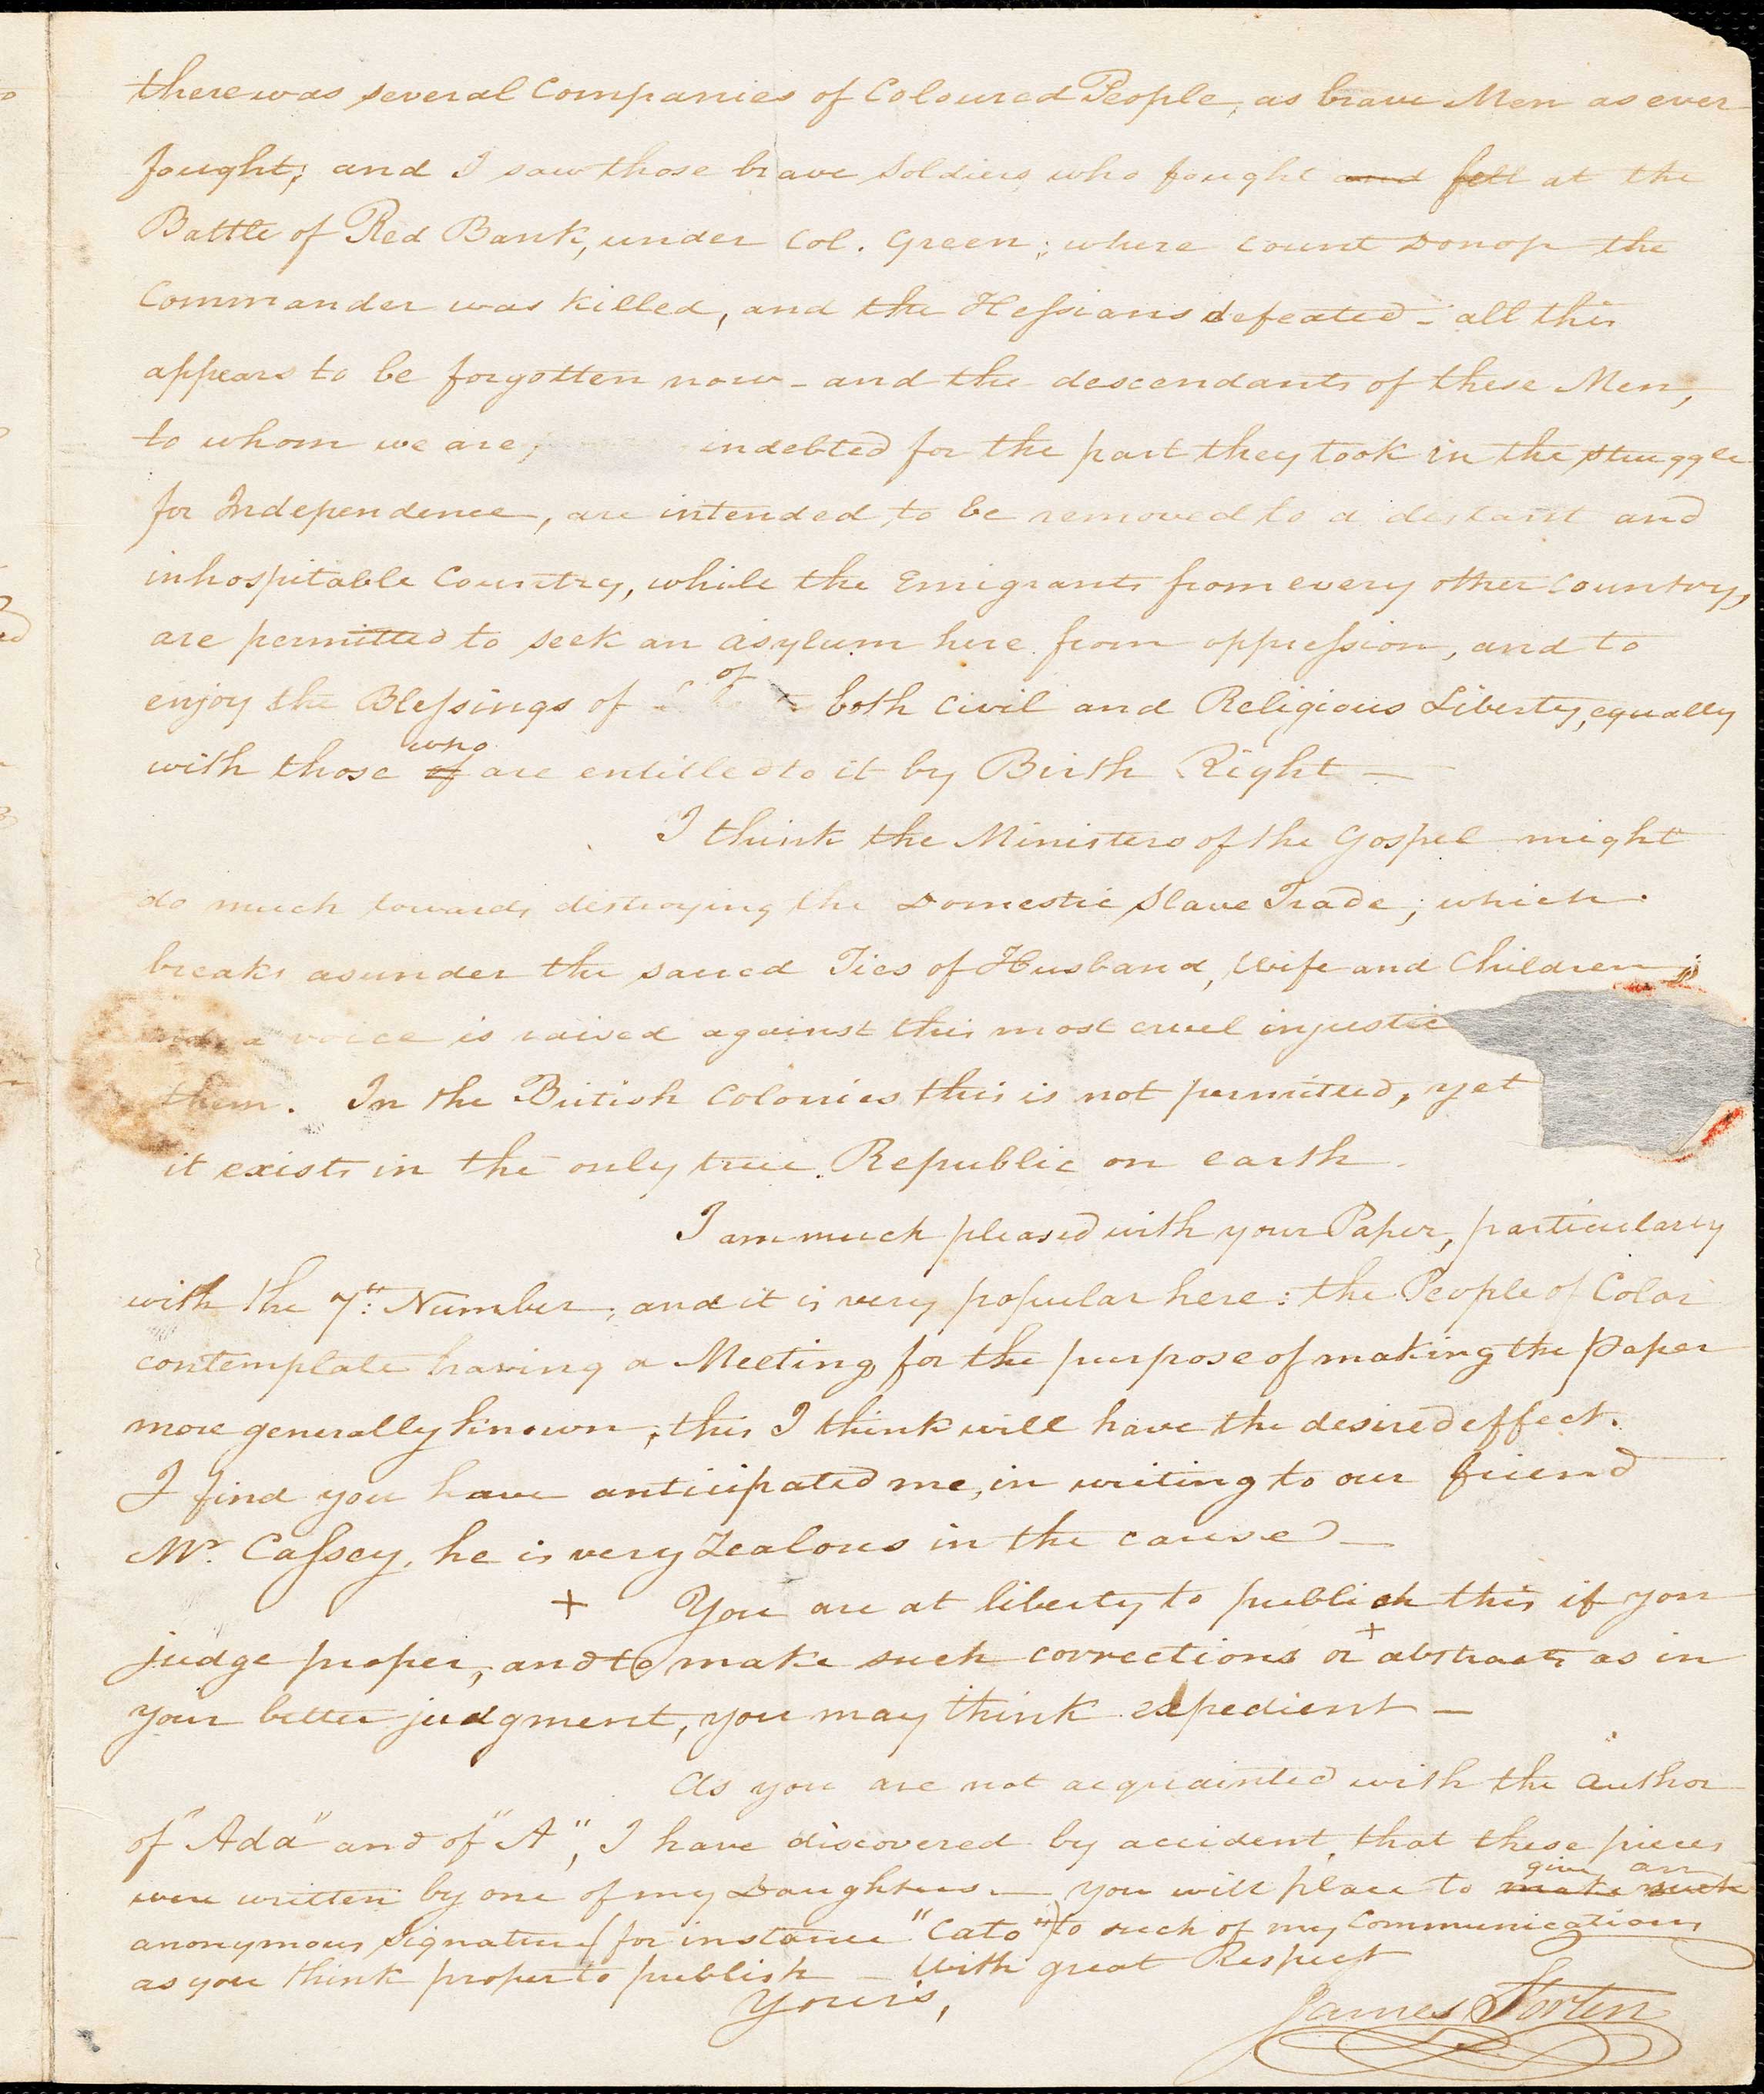 there was several Companies of Coloured People, as brave Men as ever
fought; and I saw those brave Soldiers who fought and fell at the
Battle of Red Bank, under Col. Green; where Count Donop the
Commander was killed, and the Hessians defeated - all this
appears to be forgotten now - and the descendants of these Men,
to whom we are, indebted for the part they took in the struggle
for Independence, are intended to be removed to a distant and
inhospitable Country, while the Emigrants from every other Country,
are permitted to seek an asylum here from oppression, and to
of
enjoy the Blessings of both Civil and Religious Liberty, equally
who
with those of are entitled to it by Birth Right —
I think the Ministers of the Gospel might
do much towards destroying the Domestic Slave Trade; which
breaks asunder the sacred Ties of Husband, Wife and Children;
a voice is raised against this most cruel injustic
them. In the British Colonies this is not permitted, yet
it exists in the only true Republic on earth.
I am much pleased with your Paper, particularly
with the 7th: Number, and it is very popular here: the People of Color
contemplate having a Meeting for the purpose of making the Paper
more generally known; this I think will have the desired effect.
I find you have anticipated me, in writing to our friend
Mr. Cassey, he is very Zealous in the cause —
+ You are at liberty to publish this if you
+
judge proper, and to make such corrections or abstracts as in
your better judgment, you may think expedient —
As you are not acquainted with the Author
of "Ada" and of "A", I have discovered by accident, that these pieces
give an
were written by one of my Daughters. — you will please to make such
anonymous Signature (for instance "Cato") to such of my Communications
as you think proper to publish — With great Respect
Yours,
James Forten